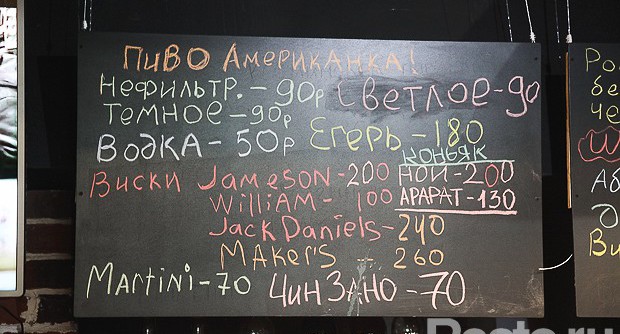 Пиво Американка!
Нефильтр. - 90р Светлое - 90
Темное - 90р
Водка - 50р Егерь - 180
Коньяк
Виски Jameson - 200 Ной - 200
William - 100 Арарат - 130
Jack Daniels - 240
Maker's - 260
Martini - 70 Чинзано - 70
Ро
бе
че
Аб
Ви